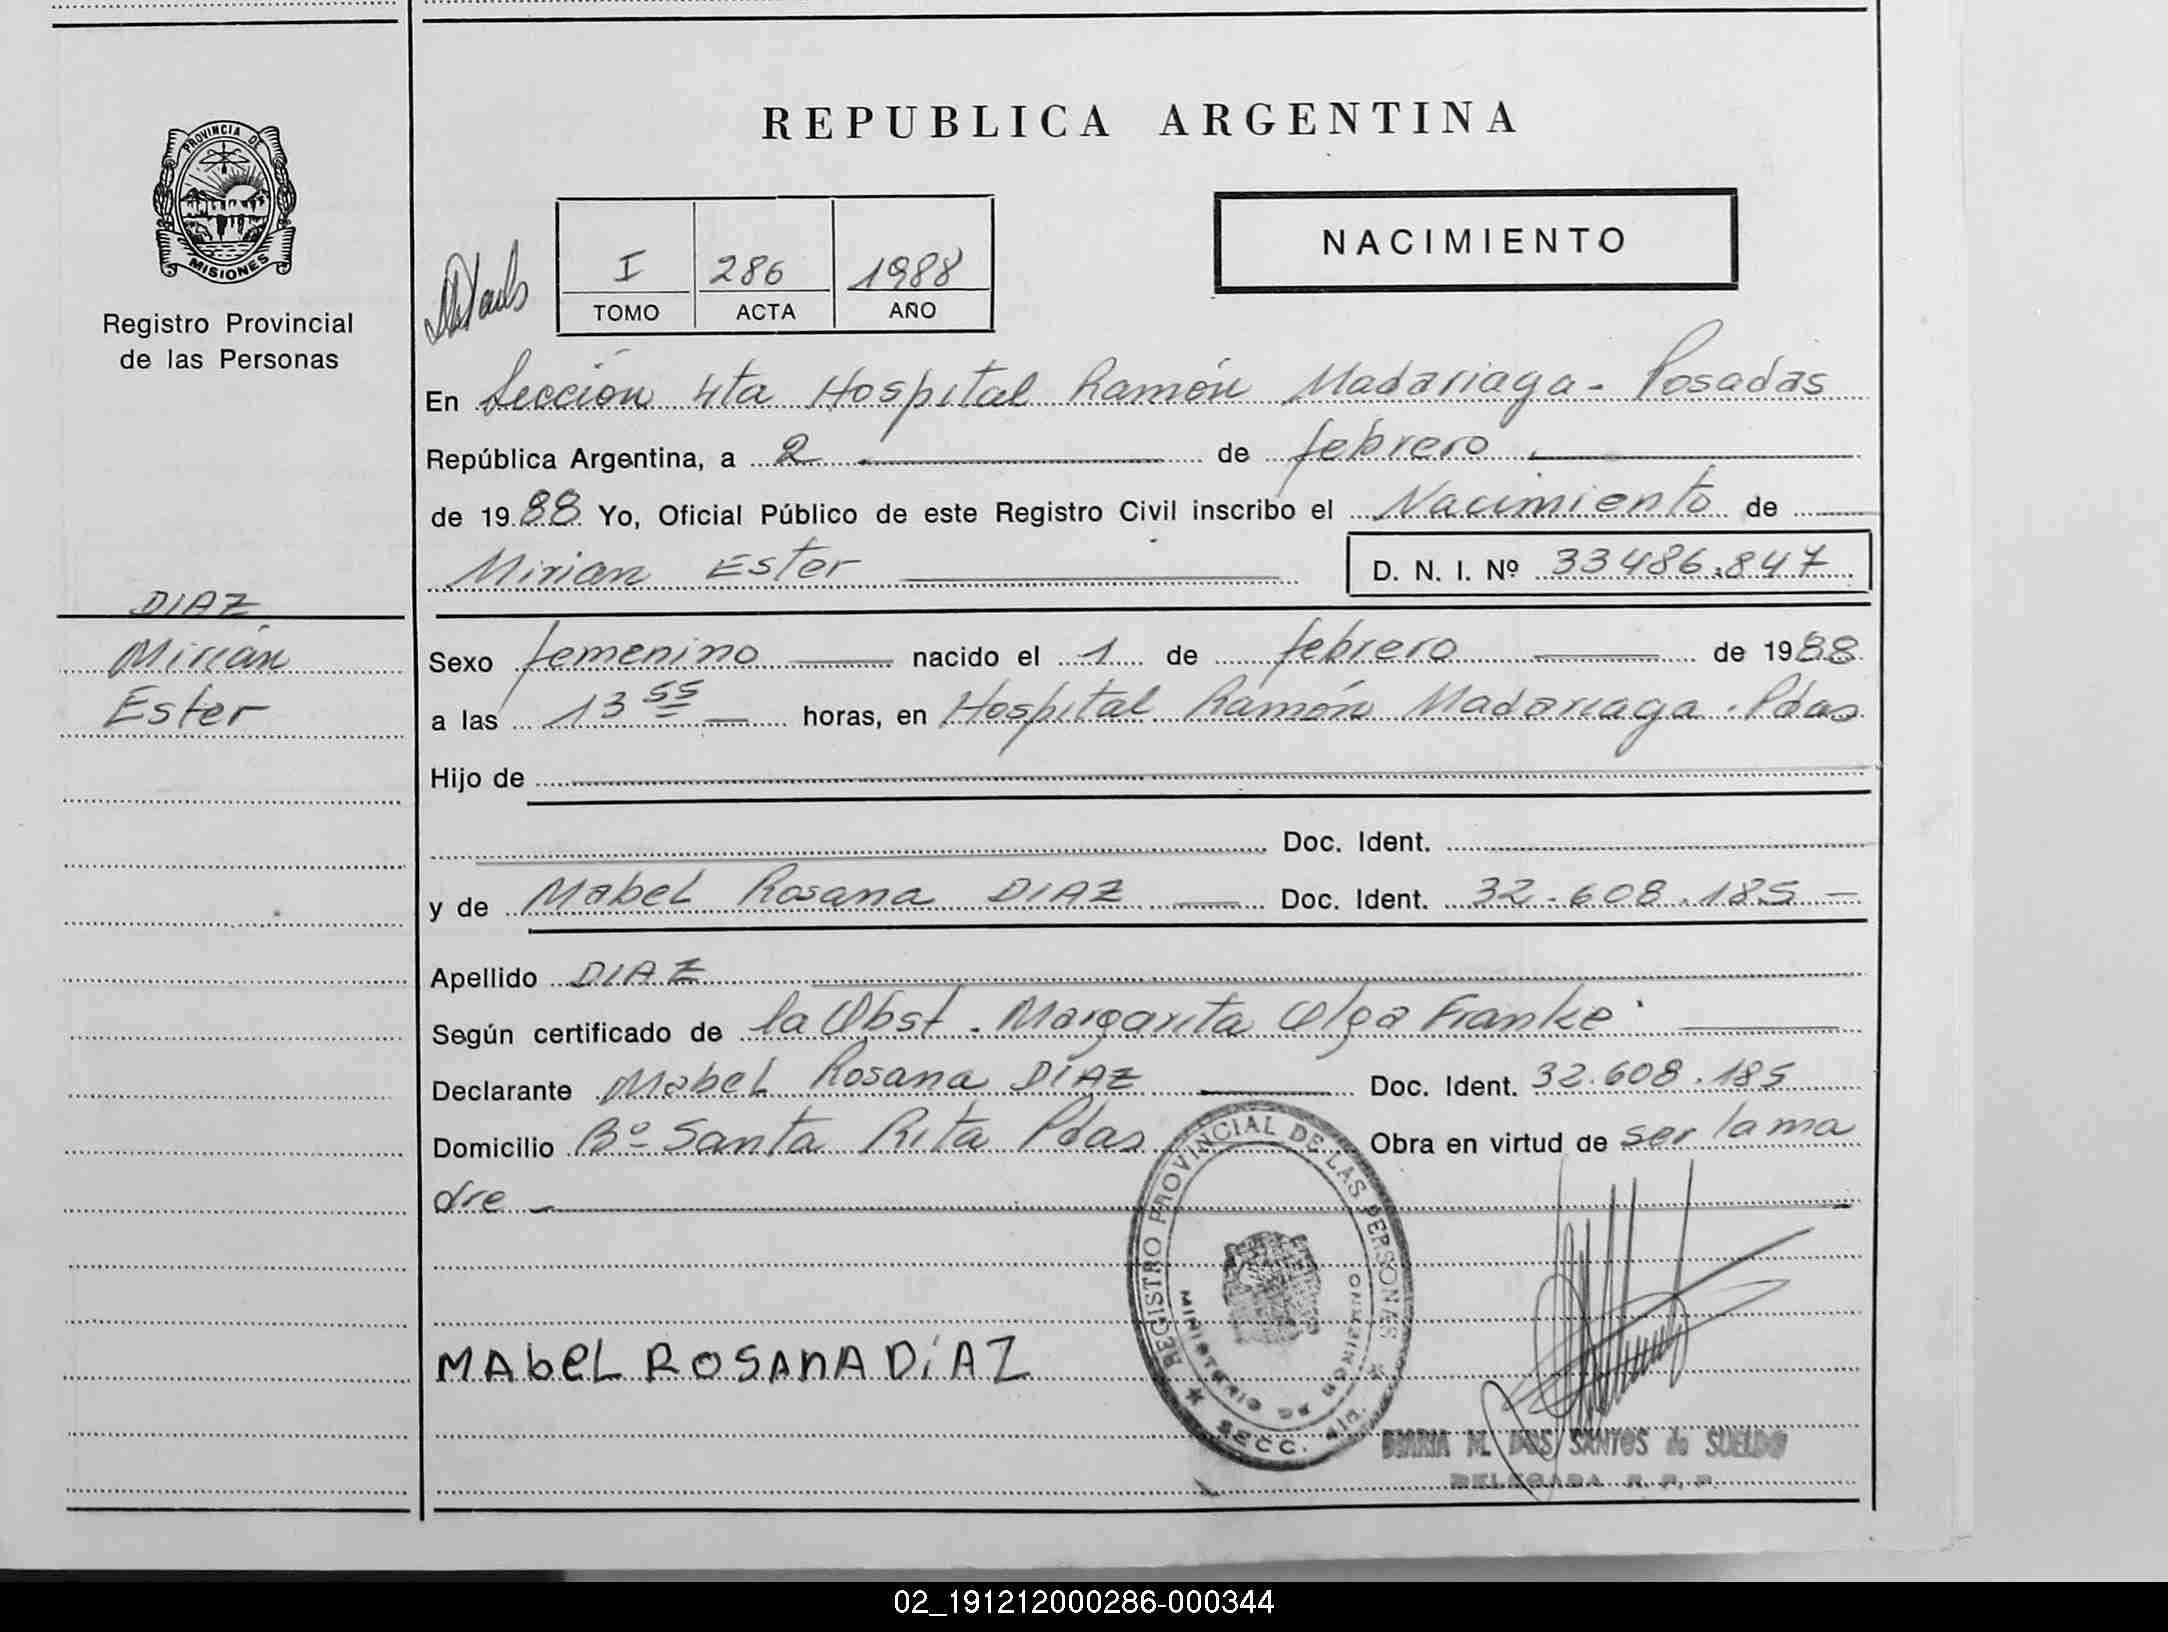 REPUBLICA ARGENTINA
PROVINCIA DE
MISIONES
Registro Provincial
de las Personas
NACIMIENTO
I 286 1988
TOMO ACTA AÑO
En Sección 4ta Hospital Ramón Madariaga - Posadas
República Argentina, a 2 de febrero
de 1988 Yo, Oficial Público de este Registro Civil inscribo el Nacimiento de
Mirian Ester D. N. I. Nº 33486.847
DIAZ
Mirian
Ester
Sexo femenino nacido el 1 de febrero de 1988
a las 13 55 horas, en Hospital Ramón Madariaga. Pdas
Hijo de
Doc. Ident.
y de Mabel Rosana DIAZ Doc. Ident. 32.608.185
Apellido DIAZ
Según certificado de la Obst. Margarita Olga Franke
Declarante Mabel Rosana DÍAZ Doc. Ident. 32.608.185
Domicilio Bº Santa Rita Pdas Obra en virtud de ser la ma
dre
MAbeL ROSAnA DíAZ
REGISTRO PROVINCIAL DE LAS PERSONAS
MINISTERIO DE GOBIERNO
SECC. 4ta.
MARIA M. DOS SANTOS de SUELDO
DELEGADA R. P. P.
02_191212000286-000344